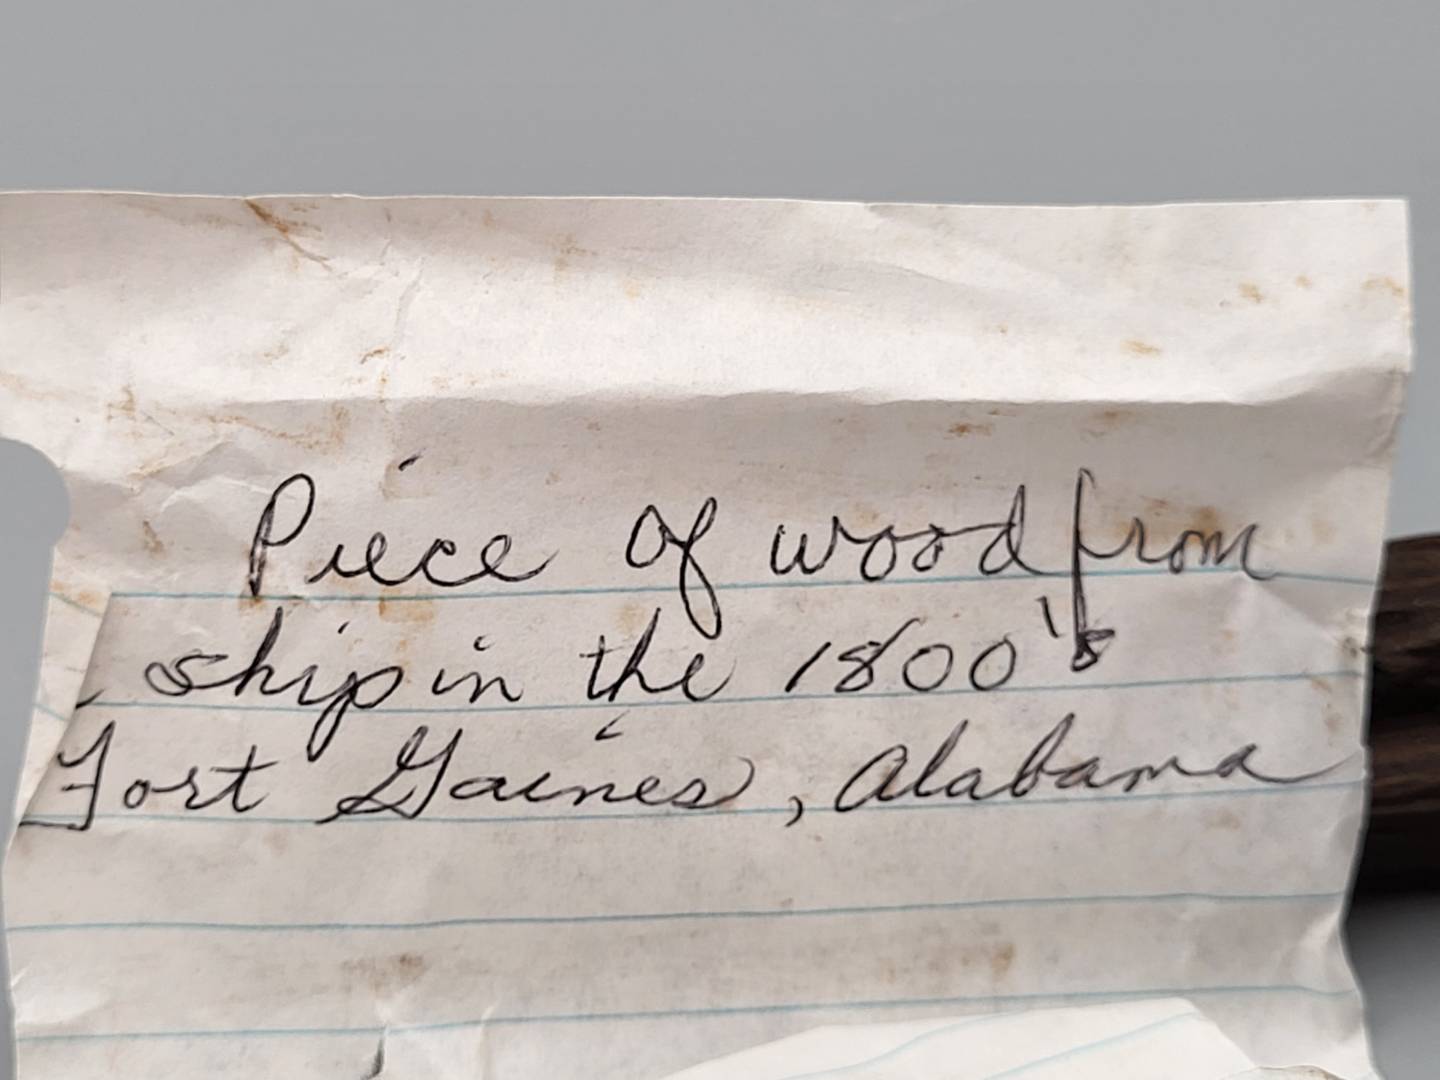 Piece of wood from
ship in the 1800's
Fort Gaines, Alabama